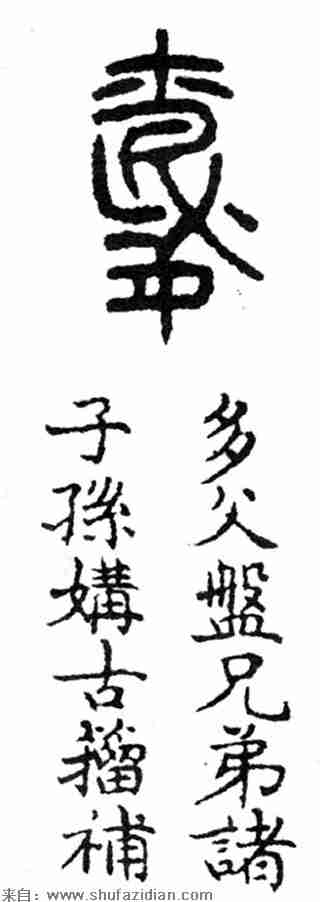 多父盤兄弟諸
子孫媾古籀補
来自：www.shufazidian.com